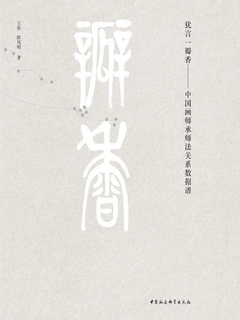 犹言一瓣香——
中国画师承师法关系数据谱
瓣香
中国社会科学出版社